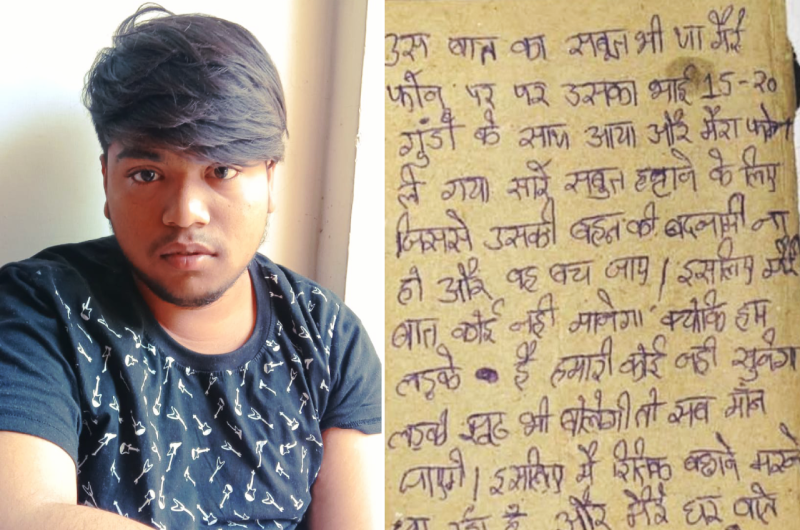 उस बात का सबूत भी था मेरे
फोन पर पर उसका भाई 15-20
गुंडो के साथ आया और मेरा फोन
ले गया सारे सबुत हटाने के लिए
जिससे उसकी बहन की बदनामी ना
हो और वह बच जाए / इसलिए मेरी
बात कोई नही मानेगा क्योकि हम
लड़के है हमारी कोई नही सुनेगा
लड़की झूठ भी बोलेगी तो सब मान
जाएगे / इसलिए मै
और मेरे घर वाले